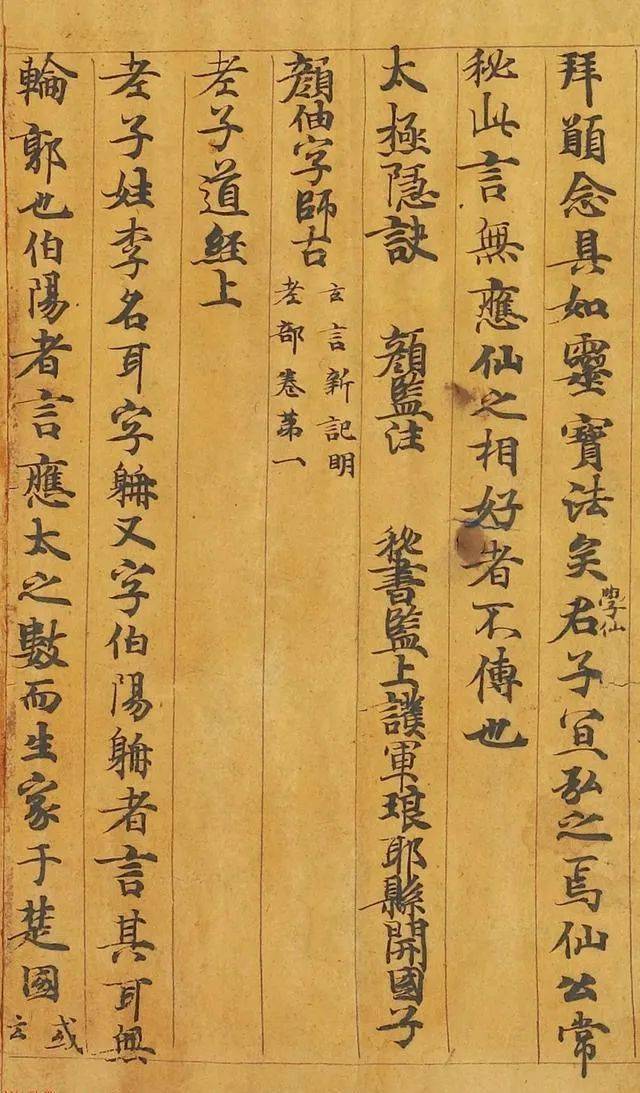 拜願念具如靈寶法矣君子宜弘之焉仙公常
學仙
秘此言無應仙之相好者不傳也
太極隱訣 顏監注 秘書監上護軍琅耶縣開國子
顏伷字師古
玄言新記明
老部卷第一
老子道經上
老子姓李名耳字聃又字伯陽聃者言其耳無
輪郭也伯陽者言應太之數而生家于楚國
或
云